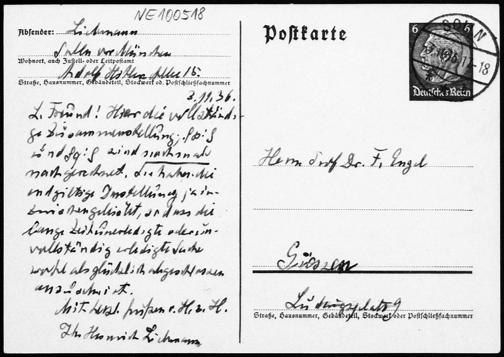 NE100518
Absender: Liebmann
Solln vor München
Wohnort, auch Zustell- oder Leitpostamt
Adolf Hitler Allee 15.
Straße, Hausnummer, Gebäudeteil, Stockwerk od. Postschließfachnummer
2. 11. 36.
L. Freund! Hier die vollständi-
ge Zusammenstellung;
und sind nochmals
nachgerechnet. Sie haben die
endgiltige Darstellung ja in-
zwischen so dass die
lange Zeit unerledigte oder un-
vollständig erledigte Sache
wohl als glücklich abgeschlossen
anzusehen ist.
Mit herzl. Grüßen v. H. z. H.
Ihr Heinrich Liebmann
Postkarte
SOLLN
6 6
Deutsches Reich
Herrn Prof. Dr. F. Engel
Giessen
Ludwigsplatz 9
Straße, Hausnummer, Gebäudeteil, Stockwerk oder Postschließfachnummer